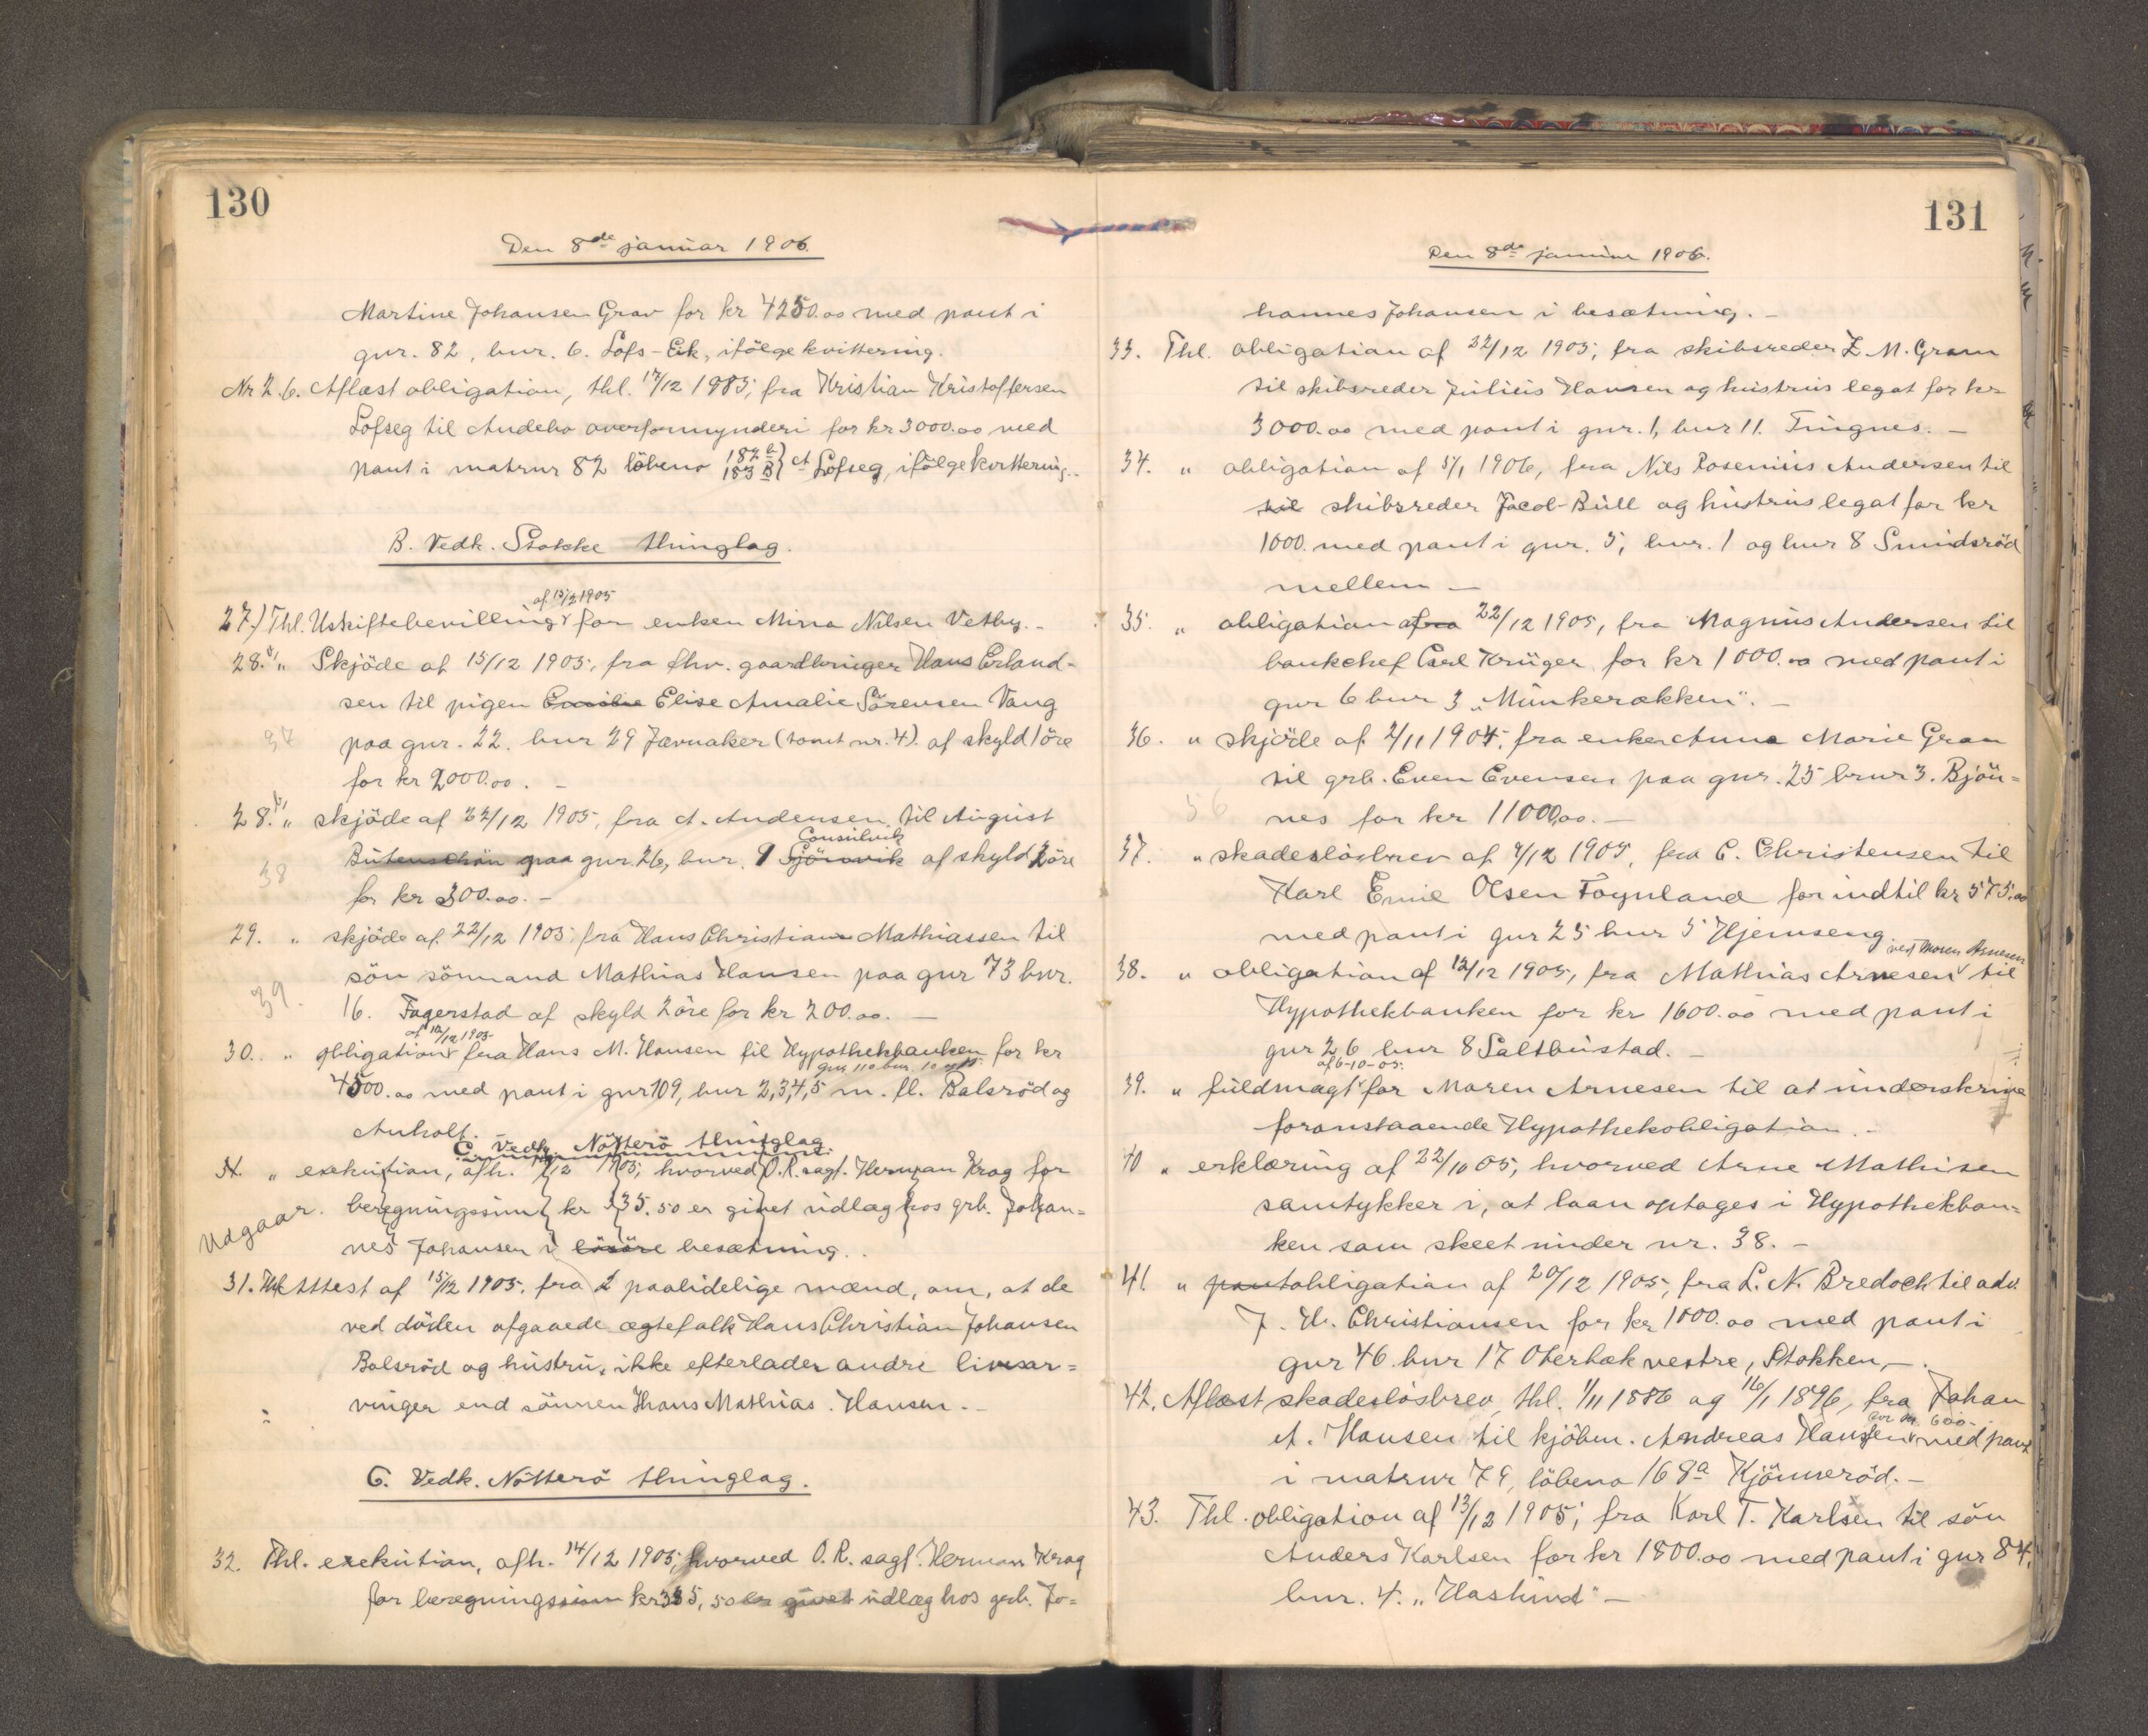 130
Den 8de januar 1906.
Martine Johansen Grav for kr 4250.00 med pant i
gnr. 82, bnr. 6. Lofs-Eik, ifölge kvittering.
Nr 26. Aflæst obligation, thl. 17/12 1885, fra Kristian Kristoffersen
Lofseg til Andebo overformynderi for kr 3000.00 med
pant i matrnr 82 löbeno 182 b 183 B } et Lofseg, ifölge kvittering.
B. Vedk. Stokke thinglag.
af 15/12 1905
27.) Thl. Uskiftebevilling for enken Mina Nilsen Vetby. -
28.a) " Skjöde af 15/12 1905, fra fhv. gaardbruger Hans Erland-
sen til pigen Emilie Elise Amalie Sörensen Vang
37 paa gnr. 22. bnr 29 Jævnaker (tomt nr. 4). af skyld 1 öre
for kr 2000.00. -
28.b) " skjöde af 22/12 1905, fra A. Andersen til August
Consilvik
Butenschön paa gnr. 26, bnr. 9 Sjörsvik af skyld 2 öre
38
for kr 300.00. -
29. " skjöde af 22/12 1905 fra Hans Christian Mathiassen til
sön sömand Mathias Hansen paa gnr 73 bnr.
39.
16. Fagerstad af skyld 2 öre for kr 200.00. -
af 12/12 1905
30. " obligation fra Hans M. Hansen til Hypothekbanken for kr
gnr. 110 bnr. 10
4500.00 med pant i gnr 109, bnr 2,3,4,5 m. fl. Balsröd og
Anholt. -
C. Vedk. Nötterö thinglag.
31. " exekution, afh. 14/12 1905, hvorved O.R. sagf. Herman Krag for
beregningssum kr 335.50 er givet udlæg hos grb. Johan=
Udgaar.
nes Johansen i lösöre besætning.
31. Thl. Attest af 15/12 1905. fra 2 paalidelige mænd, om, at de
ved döden afgaaede ægtefolk Hans Christian Johansen
Bolsröd og hustru, ikke efterlader andre livsar=
vinger end sönnen Hans Mathias Hansen. -
C. Vedk. Nötterö thinglag.
32. Thl. exekution, afh. 14/12 1905, hvorved O. R. sagf. Herman Krag
for beregningssum kr 335,50 er givet udlæg hos grb. Jo=
131
Den 8de januar 1906.
hannes Johansen i besætning. -
33. Thl. obligation af 22/12 1905, fra skibsreder L. M. Gram
til skibsreder Julius Hansen og hustrus legat for kr
3000.00 med pant i gnr. 1, bnr 11. Tingnes. -
34. " obligation af 5/1 1906, fra Nils Rosenius Andersen til
til skibsreder Jacob Bull og hustrus legat for kr
1000. med pant i gnr. 5, bnr. 1 og bnr 8 Smidsröd
mellem -
35. " obligation afra 22/12 1905, fra Magnus Andersen til
bankchef Carl Krüger for kr 1000.00 med pant i
gnr 6 bnr 3 "Munkerækken". -
36. " skjöde af 2/11 1904, fra enke Anna Marie Gran
til grb. Even Evensen paa gnr. 25 bnr 3. Bjön=
56
nes for kr 11000,00. -
37. " skadeslösbrev af 9/12 1905, fra C. Christensen til
Karl Emil Olsen Föynland for indtil kr 575.00
med pant i gnr 25 bnr 5 Hjemseng
ved Maren Arnesen
38. " obligation af 12/12 1905, fra Mathias Arnesen til
Hypothekbanken for kr 1600.00 med pant i
gnr 26 bnr 8 Saltbustad. -
af 6-10-05.
39. " fuldmagt for Maren Arnesen til at underskrive
foranstaaende Hypothekobligation. -
40 " erklæring af 22/10 05, hvorved Arne Mathisen
samtykker i, at laan optages i Hypothekban=
ken som skeet under nr. 38. -
41. " pantobligation af 20/12 1905, fra L. N. Bredoch til adv.
J. H. Christiansen for kr 1000.00 med pant i
gnr 46. bnr 17 Oterbæk vestre, Stokken, -
42. Aflæst skadeslösbrev, thl. 1/11 1886 og 16/1 1896, fra Johan
for kr. 600-
A. Hansen til kjöbm. Andreas Hansen med pant
i matrnr 79, löbeno 168a Kjönneröd. -
43. Thl. obligation af 13/12 1905, fra Karl T. Karlsen til sön
Anders Karlsen for kr 1800.00 med pant i gnr 84,
bnr. 4. "Haslund" -